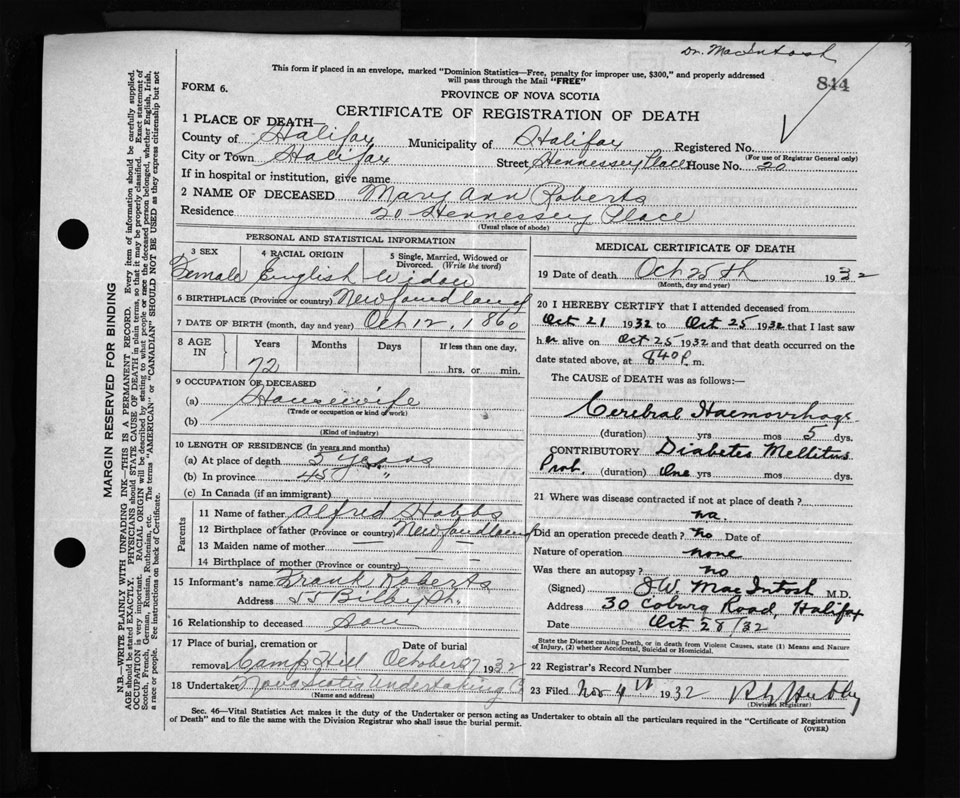 Dr. MacIntosh
This form if placed in an envelope, marked "Dominion Statistics—Free, penalty for improper use, $300," and properly addressed
will pass through the Mail "FREE"
844
FORM 6.
PROVINCE OF NOVA SCOTIA
CERTIFICATE OF REGISTRATION OF DEATH
1 PLACE OF DEATH—
County of Halifax Municipality of Halifax Registered No.
(For use of Registrar General only)
City or Town Halifax Street Hennessey Place House No. 20
If in hospital or institution, give name
2 NAME OF DECEASED Mary Ann Roberts
Residence 20 Hennessey Place
(Usual place of abode)
PERSONAL AND STATISTICAL INFORMATION
3 SEX 4 RACIAL ORIGIN 5 Single, Married, Widowed or Divorced. (Write the word)
Female English Widow
6 BIRTHPLACE (Province or country) Newfoundland
7 DATE OF BIRTH (month, day and year) Oct 12, 1860
8 AGE IN Years Months Days If less than one day,
72 hrs. or min.
9 OCCUPATION OF DECEASED
(a) Housewife
(Trade or occupation or kind of work)
(b)
(Kind of industry)
10 LENGTH OF RESIDENCE (in years and months)
(a) At place of death 3 years
(b) In province 45 "
(c) In Canada (if an immigrant)
Parents
11 Name of father Alfred Hobbs
12 Birthplace of father (Province or country) Newfoundland
13 Maiden name of mother —
14 Birthplace of mother (Province or country) —
15 Informant's name Frank Roberts
Address 55 Bilby St.
16 Relationship to deceased Son
17 Place of burial, cremation or Date of burial
removal Camp Hill October 27 1932
18 Undertaker Nova Scotia Undertaking Co
(Name and address)
MEDICAL CERTIFICATE OF DEATH
19 Date of death Oct 25th 1932
(Month, day and year)
20 I HEREBY CERTIFY that I attended deceased from
Oct 21 1932 to Oct 25 1932 that I last saw
her alive on Oct 25 1932 and that death occurred on the
date stated above, at 840 P. m.
The CAUSE of DEATH was as follows:—
Cerebral Haemorrhage
(duration) yrs mos 5 dys.
CONTRIBUTORY Diabetes Mellitus
Prob. (duration) One yrs mos dys.
21 Where was disease contracted if not at place of death?
na.
Did an operation precede death? no Date of
Nature of operation none
Was there an autopsy? no
(Signed) J.W. MacIntosh M.D.
Address 30 Coburg Road, Halifax
Date Oct 28/32
State the Disease causing Death, or in death from Violent Causes, state (1) Means and Nature
of Injury, (2) whether Accidental, Suicidal or Homicidal.
22 Registrar's Record Number
23 Filed Nov 4th 1932
(Division Registrar)
Sec. 46—Vital Statistics Act makes it the duty of the Undertaker or person acting as Undertaker to obtain all the particulars required in the "Certificate of Registration
of Death" and to file the same with the Division Registrar who shall issue the burial permit.
(OVER)
MARGIN RESERVED FOR BINDING
N.B.—WRITE PLAINLY WITH UNFADING INK—THIS IS A PERMANENT RECORD. Every item of information should be carefully supplied.
AGE should be stated EXACTLY. PHYSICIANS should STATE CAUSE OF DEATH in plain terms, so that it may be properly classified. Exact statement of
OCCUPATION is very important. RACIAL ORIGIN will be described by stating to what people or race the deceased person belonged, whether English, Irish,
Scotch, French, German, Russian, Ruthenian, etc. The terms "AMERICAN" or "CANADIAN" SHOULD NOT BE USED as they express citizenship but not
a race or people. See instructions on back of Certificate.